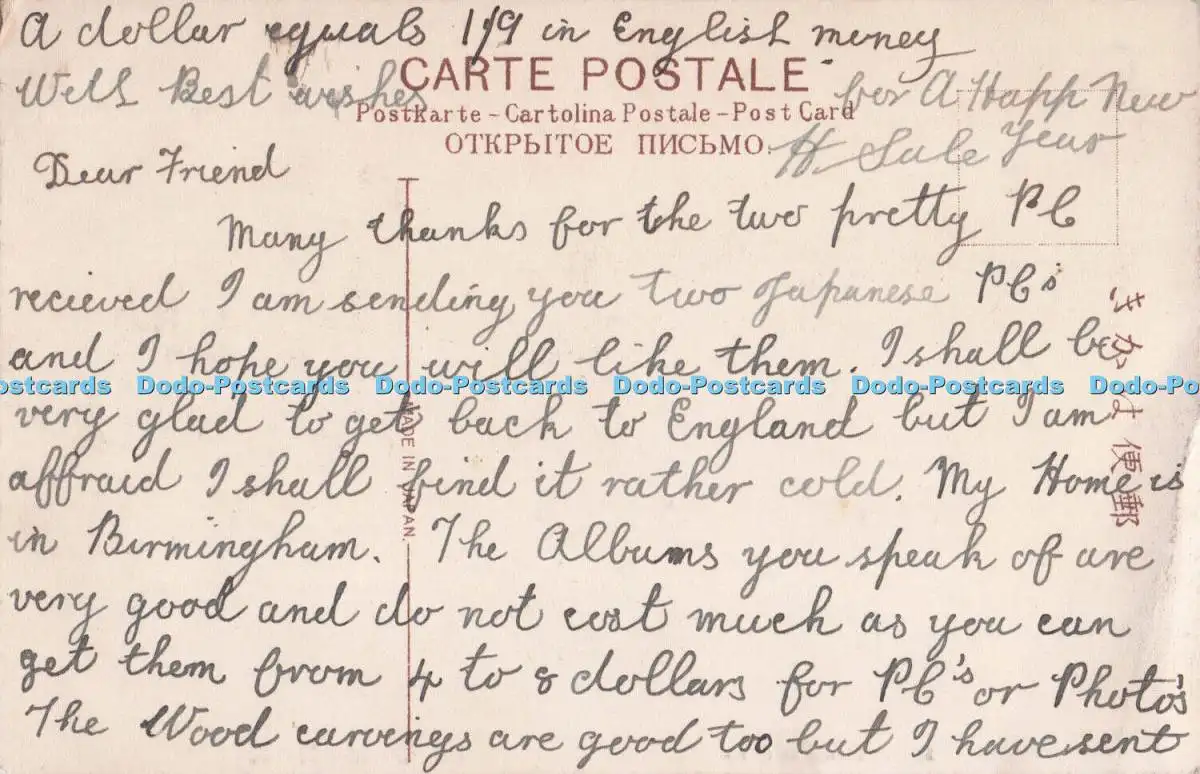 A dollar equals 1/9 in English money
CARTE POSTALE
Well Best wishes for A Happ New
Postkarte - Cartolina Postale - Post Card
ОТКРЫТОЕ ПИСЬМО.
Year
H Sale
Dear Friend
Many thanks for the two pretty PC
recieved I am sending you two Japanese PCs
and I hope you will like them. I shall be
Dodo-Postcards Dodo-Postcards Dodo-Postcards Dodo-Postcards Dodo-Postcards
very glad to get back to England but I am
affraid I shall find it rather cold. My Home is
in Birmingham. The Albums you speak of are
very good and do not cost much as you can
get them from 4 to 8 dollars for PC's or Photo's
The Wood carvings are good too but I have sent
MADE IN JAPAN.
郵便はがき